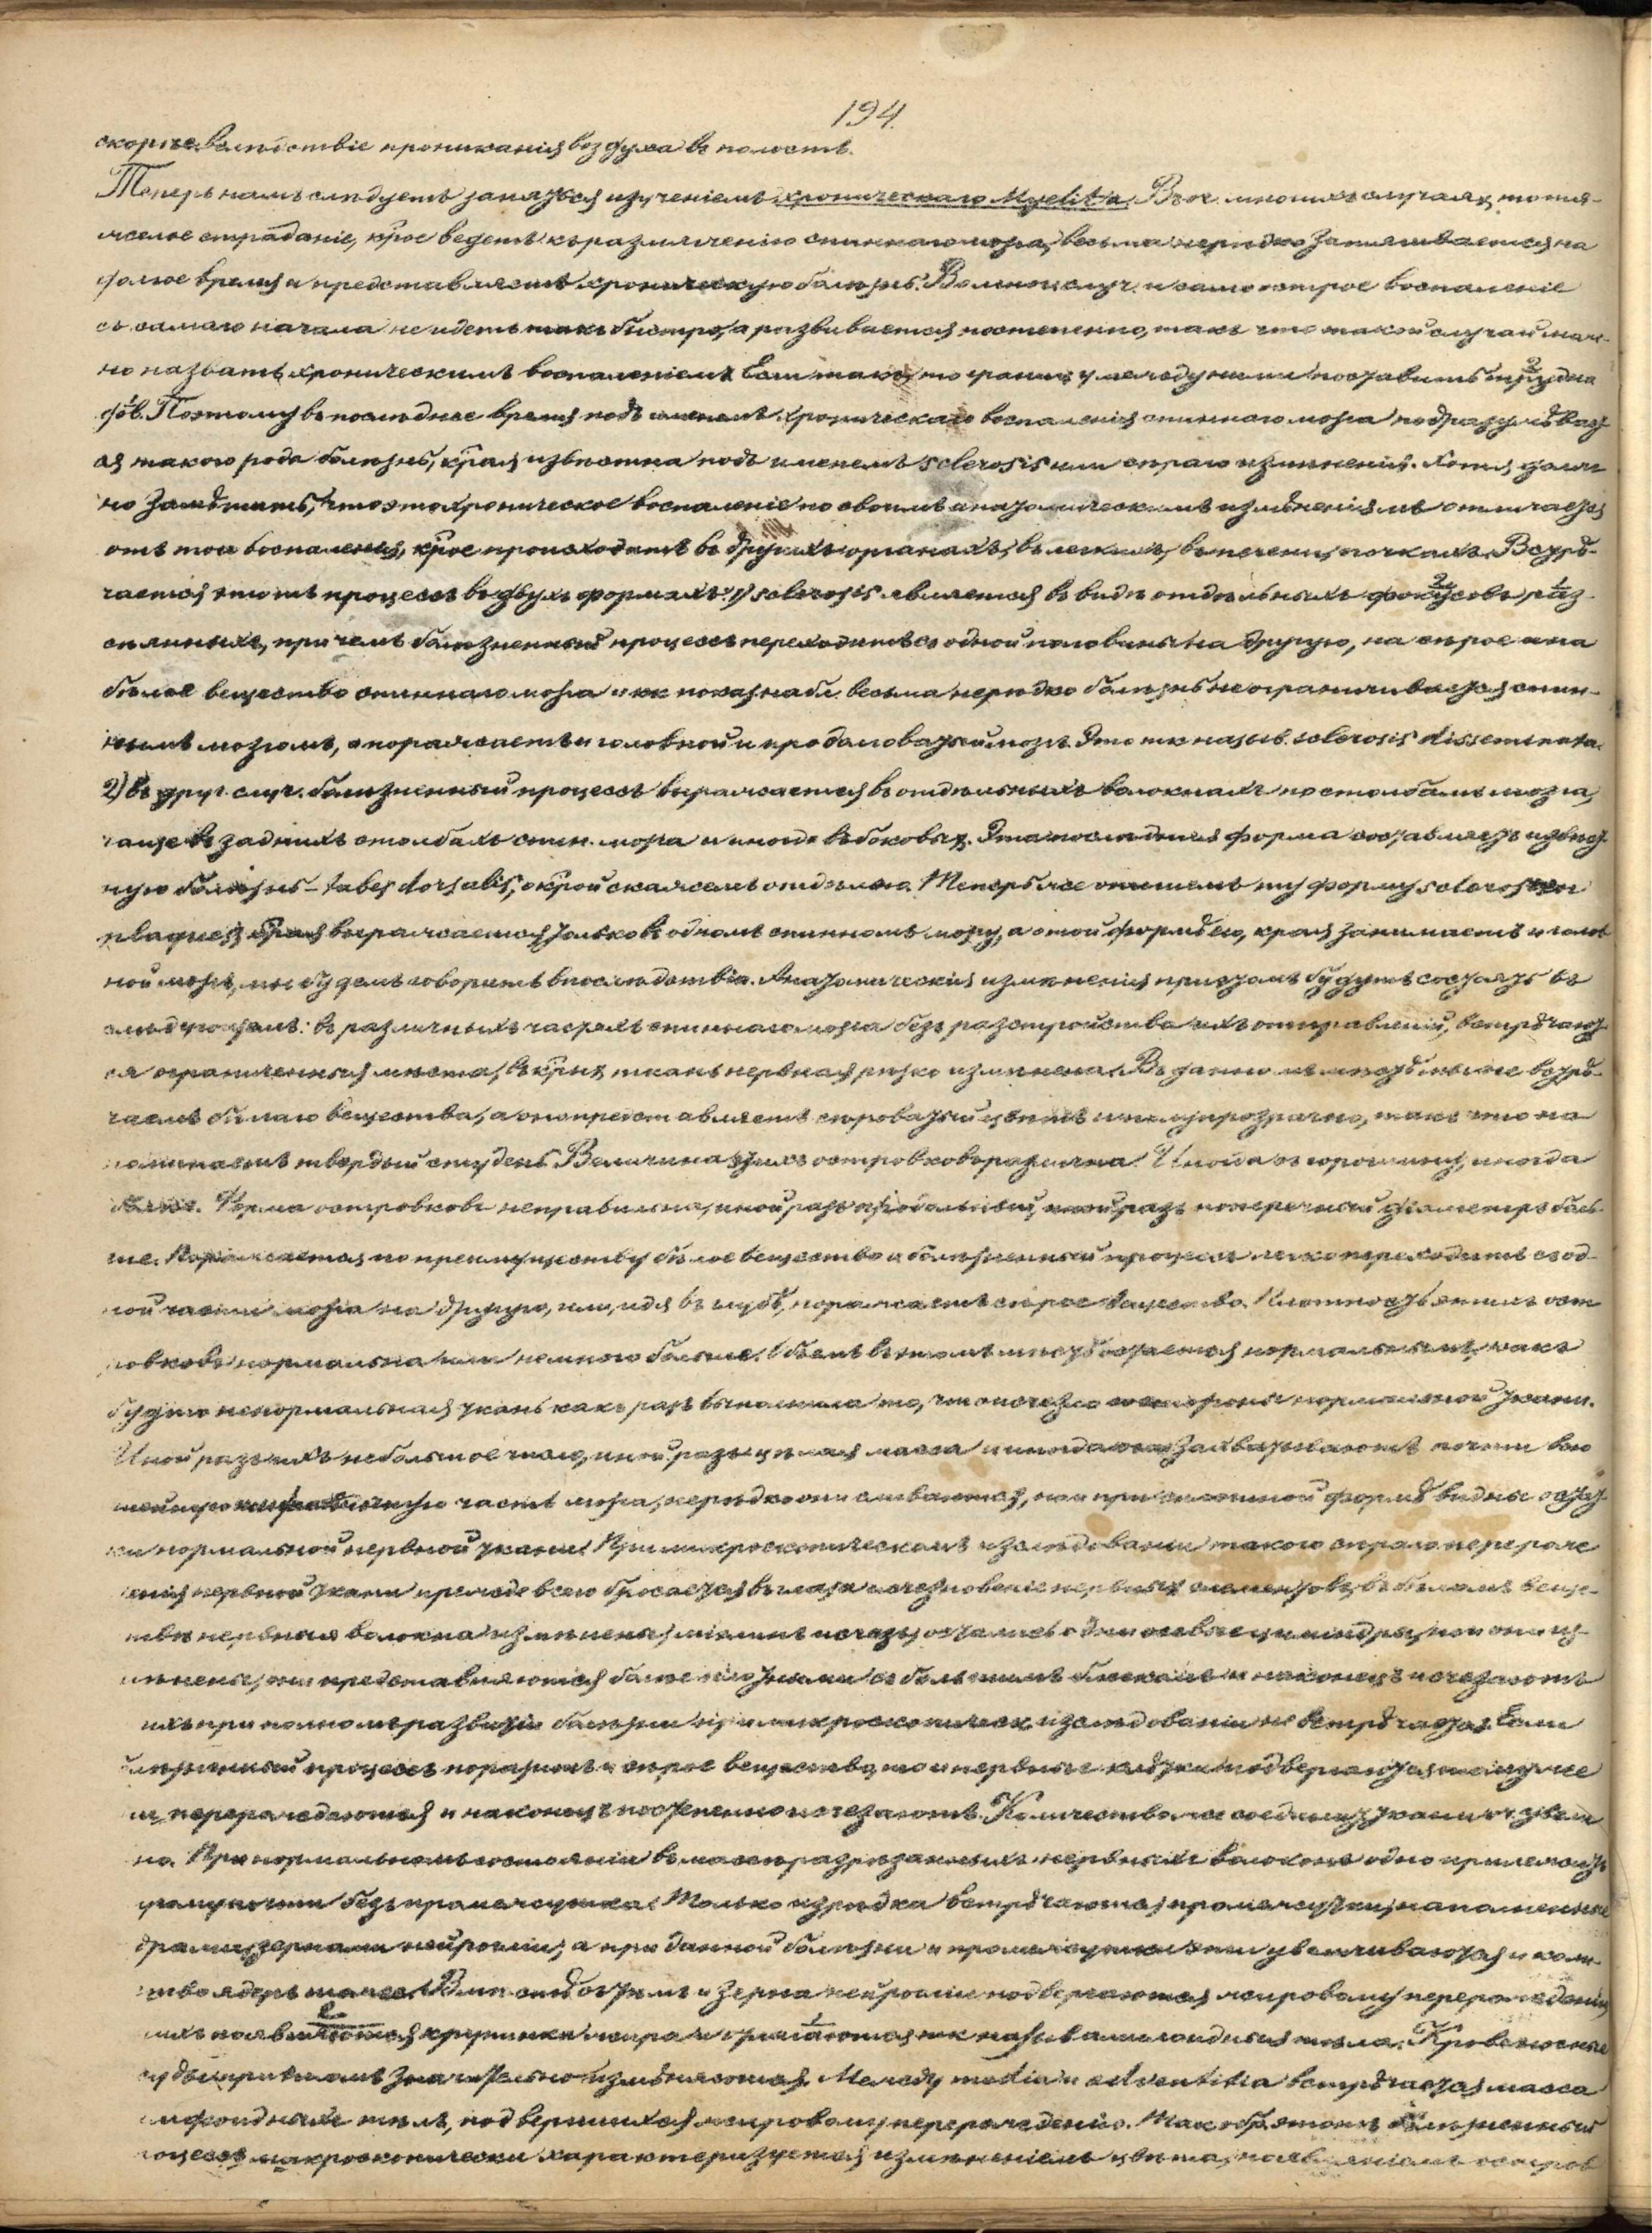 194.
скорѣе вслѣдствіе проникания воздуха въ полость.
Теперь намъ слѣдуетъ заняться изученіемъ хроническаго Myelit'a. Во многихъ случаяхъ то тя-
желое страданіе, к̃рое ведетъ къ размягченію спиннаго мозга, весьма нерѣдко затягивается на
долгое время и представляетъ хроническую болѣзнь. Во многихъ случ. и само острое воспаленіе
съ самаго начала не идетъ такъ быстро, а развивается постепенно, такъ что такой случай мож-
но назвать хроническимъ воспаленіемъ. Если такъ, то границу между ними поставить трудно
Поэтому въ послѣднее время подъ именемъ хроническаго воспаленія спиннаго мозга подразумѣваэт
ся такого рода болѣзнь, к̃рая извѣстна подъ именемъ sclerosis или сѣраго измѣненія. Хотя долж
но замѣтить, что это хроническое воспаленіе по своимъ анатомическимъ измѣненіямъ отличается
отъ того воспаленія, к̃рое происходитъ въ другихъ органахъ, въ легкихъ, въ печени, почкахъ. Встрѣ-
чается этотъ процессъ въ двухъ формахъ: 1) sclerosis является въ видѣ отдѣльныхъ фокусовъ, раз-
сѣянныхъ, при чемъ болѣзненный процессъ переходитъ съ одной половины на другую, на сѣрое и на
бѣлое вещество спиннаго мозга и весьма нерѣдко болѣзнь не ограничивается спин-
нымъ мозгомъ, а поражаетъ и головной и продолговатый мозгъ. Это тк назыв. sclerosis disseminata.
2) въ друг. случ. болѣзненный процессъ выражается въ отдѣльныхъ волокнахъ по столбамъ мозга,
чаще въ заднихъ столбахъ спин. мозга и иногда въ боковых. Эта послѣдняя форма составляетъ извѣст-
ную болѣзнь – tabes dorsalis, о к̃рой скажемъ отдѣльно. Теперь же опишемъ ту форму sclerosis en
plaques, к̃рая выражается только въ одномъ спинномъ мозгу, а о той формѣ его, к̃рая занимаетъ и голов
ной мозгъ, мы будемъ говорить впослѣдствіи. Анатомическія измѣненія при этомъ будутъ состоять въ
слѣдующемъ: въ различныхъ частяхъ спиннаго мозга безъ разстройства ихъ отправленій, встрѣчают-
ся ограниченныя мѣста, въ к̃рых ткань нервная рѣзко измѣнена. Въ данномъ мѣстѣ мы не встрѣ-
чаемъ бѣлаго вещества, а оно представляетъ сѣроватый цвѣтъ и полупрозрачно, такъ что на
поминаетъ твердый студень. Величина этихъ островковъ различна. Иногда съ горошину, иногда
больше. Форма островковъ неправильна, иной разъ продольный, иной разъ поперечный діаметръ боль-
ше. Поражается по преимуществу бѣлое вещество и болѣзненный процессъ легко переходитъ съ од-
ной части мозга на другую, или, идя въ глубь, поражаетъ сѣрое вещество. Плотность этихъ ост
ровковъ нормальна или немного больше. Объемъ въ этомъ мѣстѣ остается нормальнымъ, какъ
будто ненормальная ткань какъ разъ выполнила то, что исчезло со стороны нормальной ткани.
Иной разъ ихъ небольшое число, иной разъ цѣлая масса и иногда они захватываютъ почти всю
часть мозга, нерѣдко они сливаются, но и при сплошной формѣ видны остат-
ки нормальной нервной ткани. При микроскопическомъ изслѣдованіи такого сѣраго перерож
денія нервной ткани прежде всего бросается въ глаза исчезновеніе нервныхъ элементовъ; въ бѣломъ веще-
ствѣ нервныя волокна измѣнены, міэлинъ исчезъ, остались одни осевые цилиндры, но и они из-
мѣнены, они представляются болѣе плотными съ большимъ блескомъ и наконецъ исчезаютъ
ихъ при полномъ развитіи болѣзни при микроскопическ. изслѣдованіи не встрѣчается. Если
болѣзненный процессъ поразитъ и сѣрое вещество, то и нервныя клѣтки подвергаются той же
и перерождаются и наконецъ постепенно исчезаютъ. Количество же соедин. ткани оч. увели
но. При нормальномъ состояніи въ массѣ разрѣзанныхъ нервныхъ волоконъ одно прилежитъ
другому почти безъ промежутка. Только изрѣдка встрѣчаются промежутки, наполненные
драми, зернами нейрогліи, а при данной болѣзни и промежутки эти увеличиваются и коли-
ство ядеръ также. Вмѣстѣ съ этимъ и зерна нейрогліи подвергаются жировому перерожденію
нихъ появляются крупинки жира и тк называмилоидныя тѣла. Кровеносные
суды притомъ значительно измѣняются. Между media и adventitia встрѣчается масса
имфоидныхъ тѣлъ, подвергшихся жировому перерожденію. Так обр. этотъ болѣзненный
роцессъ макроскопически характеризуется измѣненіемъ цвѣта, появленіемъ остров